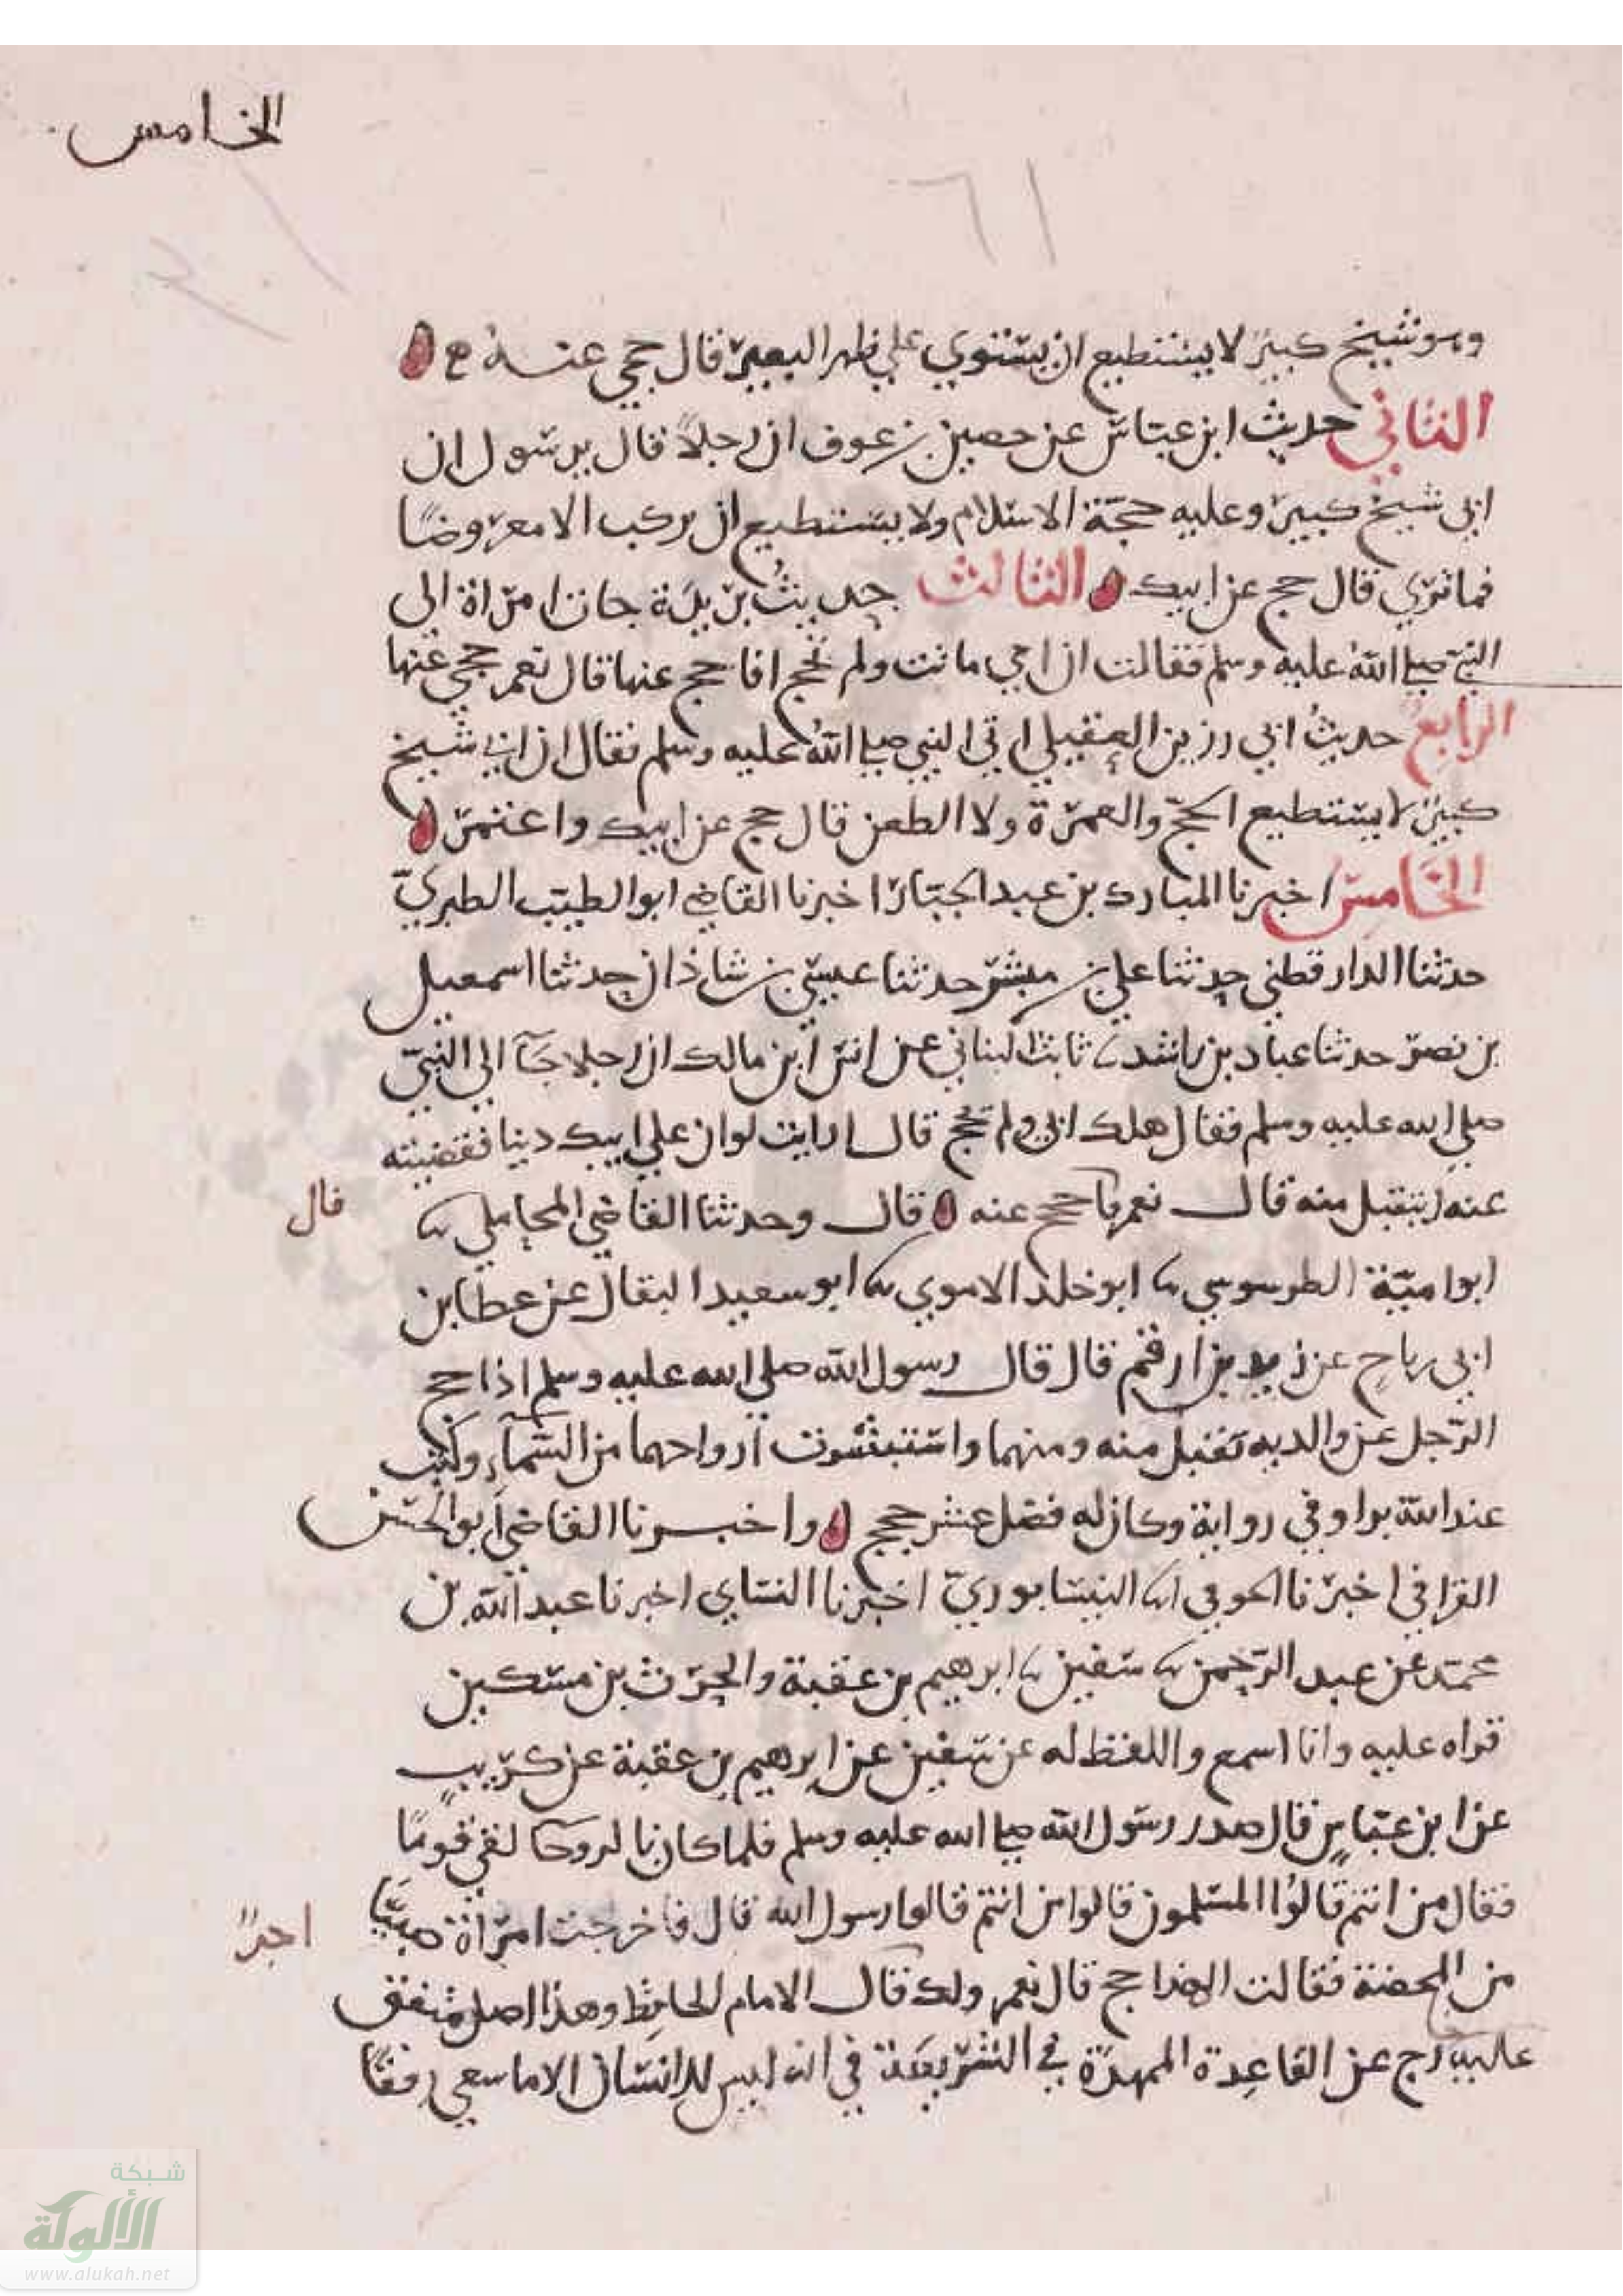 الخامس
٦١
وهو شيخ كبير لا يستطيع ان يستوي علي ظهر البعير قال حجي عنه ع
الثاني حديث ابن عباس عن حصين بن عوف ان رجلاً قال يرسول ان
ابي شيخ كبير وعليه حجة الاسلام ولا يستطيع ان يركب الا معروضًا
فما تري قال حج عن ابيك الثالث حديث بريدة جات امراة الى
النبي صلى الله عليه وسلم فقالت ان امي ماتت ولم تحج افاحج عنها قال نعم حجي عنها
الرابع حديث ابي رزين العقيلي اتي النبي صلى الله عليه وسلم فقال ان ابي شيخ
كبير لا يستطيع الحج والعمرة ولا الظعن قال حج عن ابيك واعتمر
الخامس اخبرنا المبارك بن عبد الجبار اخبرنا القاضي ابو الطيب الطبري
حدثنا الدارقطني حدثنا علي بن مبشر حدثنا عيسى بن شاذان حدثنا اسمعيل
بن نصر حدثنا عباد بن راشد ثنا ثابت البناني عن انس ابن مالك ان رجلا جآ الي النبي
صلي الله عليه وسلم فقال هلك ابي ولم يحج قال ارايت لو ان علي ابيك دينا فقضيته
عنه ايتقبل منه قال نعم فاحجج عنه قال وحدثنا القاضي المحاملي ثنا
قال
ابو امية الطرسوسي ثنا ابو خلد الاموي ثنا ابو سعيد البقال عن عطا بن
ابي رباح عن زيد بن ارقم قال قال رسول الله صلى الله عليه وسلم اذا حج
الرجل عن والديه تقبل منه ومنهما واستبشرت ارواحهما من السمآء وكتب
عند الله برا وفي رواية وكان له فضل عشر حجج واخبرنا القاضي ابو الحسن
القرافي اخبرنا الحوفي انا النيسابوري اخبرنا النساي اخبرنا عبد الله بن
محمد عن عبد الرحمن ثنا سفين ثنا ابرهيم بن عقبة والحرث بن مسكين
قراه عليه وانا اسمع واللفظ له عن سفين عن ابرهيم بن عقبة عن كريب
عن ابن عباس قال صدر رسول الله صلى الله عليه وسلم فلما كان بالروحا لقي قومًا
فقال من انتم قالوا المسلمون قالوا من انتم قالوا رسول الله قال فاخرجت امراة صبيًا
من المحفة فقالت الهذا حج قال نعم ولك قال الامام الحافظ وهذا اصل متفق
اجرً
عليه خارج عن القاعدة الممهدة في الشريعة في انه ليس للانسان الا ما سعي رفقًا
شبكة
الألوكة
www.alukah.net